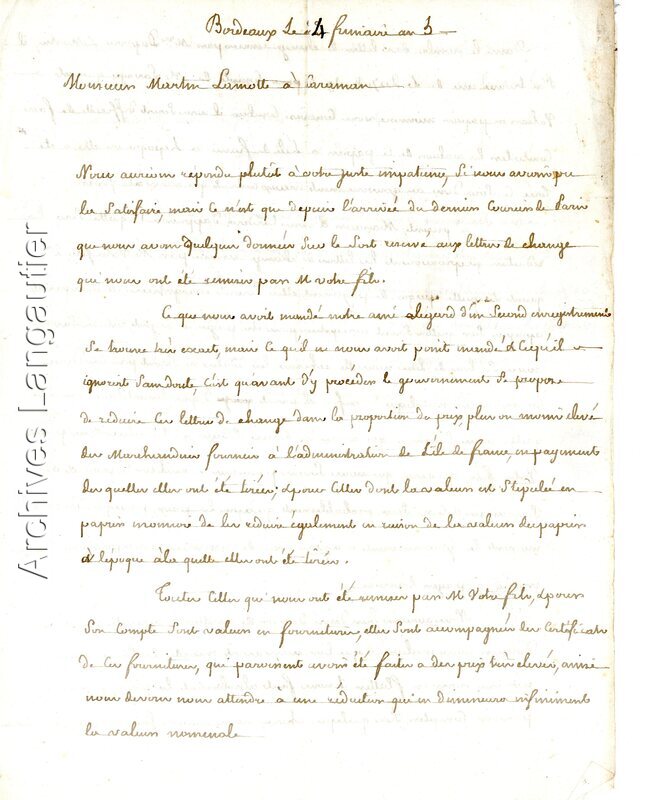 Bordeaux Le 4 frimaire an 5
Monsieur Martin Lamotte à Caraman
Nous aurions repondu plutôt à votre juste impatience, Si nous avions pu
la Satisfaire, mais Ce n'est que depuis l'arrivée du dernier Courier de Paris
que nous avons quelques données Sur le Sort reservé aux lettres de change
qui nous ont été remises par M votre fils.
Ce que nous avoit mandé notre ami a l'egard d'un Second enregistrement
Se trouve très exact, mais Ce qu'il ne nous avoit point mandé & Ce qu'il
ignoroit Sans doute, C'est qu'avant d'y procéder le gouvernement Se propose
de réduire Ces lettres de change dans la proportion du prix, plus ou moins elevé
des Marchandises fournies à l'administration de L'ile de france, en payement
des quelles elles ont été tirées; & pour Celles dont la valeur est Stipulée en
papier monnoie de les réduire également en raison de la valeur du papier
à l'époque à la quelle elles ont été tirées.
Toutes Celles qui nous ont été remises par M Votre fils, & pour
Son Compte Sont valeur en fournitures, elles Sont accompagnées des Certificats
de Ces fournitures, qui paroissent avoir été faites a des prix très elevés, ainsi
nous devons nous attendre à une réduction qui en diminuera infiniment
la valeur nominale
Archives Langautier